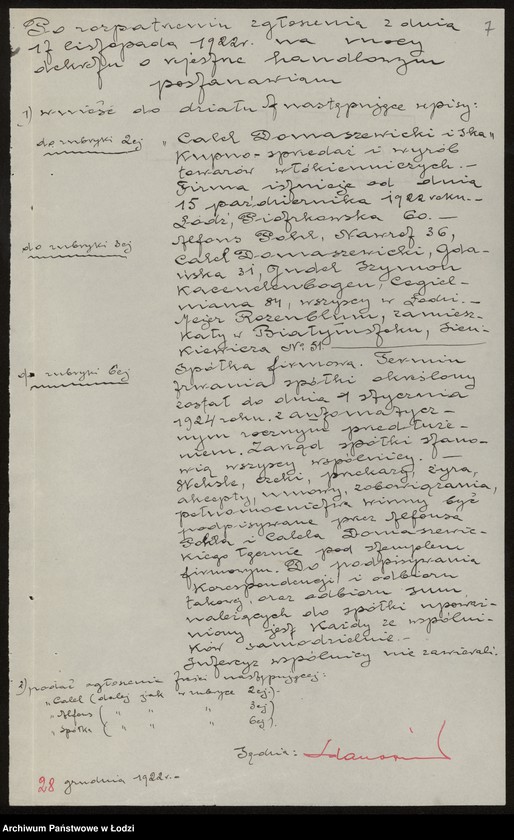 7
Po rozpatrzeniu zgłoszenia z dnia
17 listopada 1922r. na mocy
dekretu o rejestrze handlowym
postanawiam
1) wnieść do działu A następujące wpisy:
do rubryki 2ej
"Calel Domaszewicki i S-ka"
Kupno-sprzedaż i wyrób
towarów włókienniczych.-
Firma istnieje od dnia
15 października 1922 roku.-
Łódź, Piotrkowska 60.-
do rubryki 3ej
Alfons Pohl, Nawrot 36,
Calel Domaszewicki, Gdań-
ska 31, Judel Szymon
Kacenelenbogen, Cegiel-
niana 84, wszyscy w Łodzi.-
Mejer Rozenblum, zamiesz-
kały w Białymstoku, Sien-
kiewicza Nr. 31
do rubryki 6ej
Spółka firmowa. Termin
trwania spółki określony
został do dnia 1 stycznia
1924 roku z automatycz-
nym rocznym przedłuże-
niem. Zarząd spółki stano-
wią wszyscy wspólnicy.-
Weksle, czeki, przekazy, żyra,
akcepty, umowy, zobowiązania,
pełnomocnictwa winny być
podpisywane przez Alfonsa
Pohla i Calela Domaszewic-
kiego łącznie pod stemplem
firmowym. Do podpisywania
korespondencji i odbioru
takowej, oraz odbioru sum
należących do spółki upoważ-
niony jest każdy ze wspólni-
ków samodzielnie.-
Intercyz wspólnicy nie zawierali.
2) podać ogłoszenie treści następującej:
"Calel (dalej jak w rubryce 2ej).
"Alfons ( " " " 3ej)
"Spółka ( " " " 6ej).
Sędzia:
28 grudnia 1922r.-
Archiwum Państwowe w Łodzi